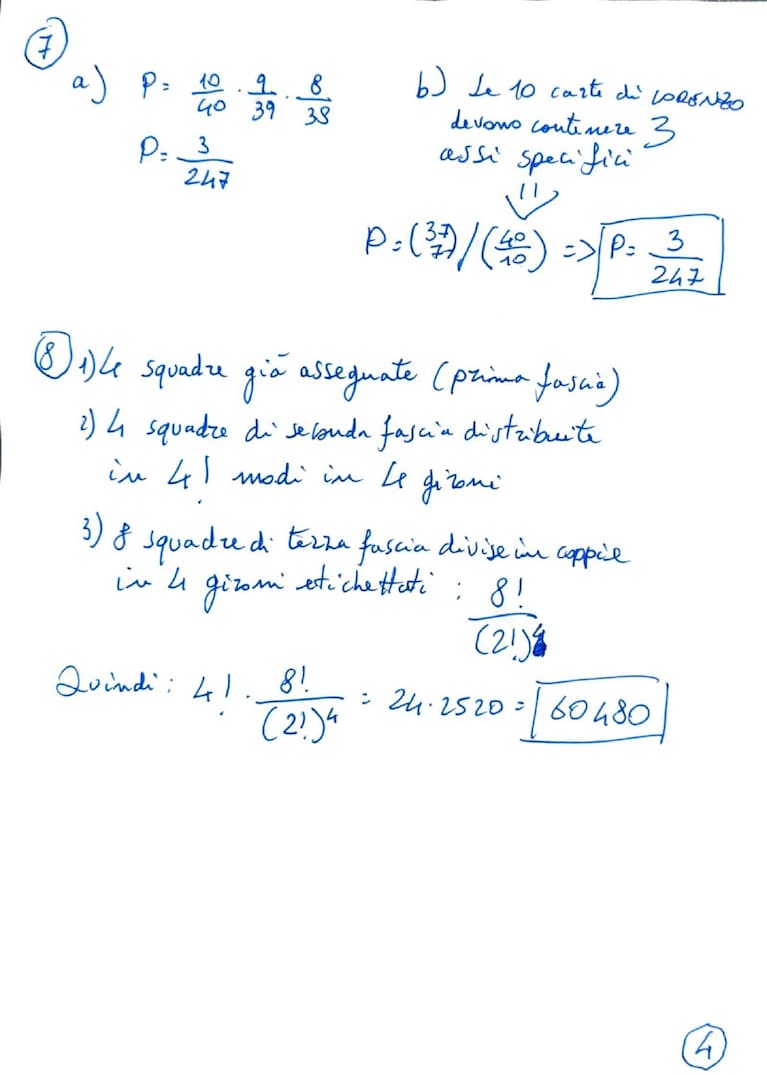 7
a) P = 10/40 · 9/39 · 8/38
P = 3/247
b) Le 10 carte di LORENZO
devono contenere 3
assi specifici
⇓
P = (37 7) / (40 10) => P = 3/247
8 1) 4 squadre già assegnate (prima fascia)
2) 4 squadre di seconda fascia distribuite
in 4! modi in 4 gironi
3) 8 squadre di terza fascia divise in coppie
in 4 gironi etichettati : 8!/(2!)4
Quindi : 4! · 8!/(2!)⁴ = 24·2520 = 60480
4